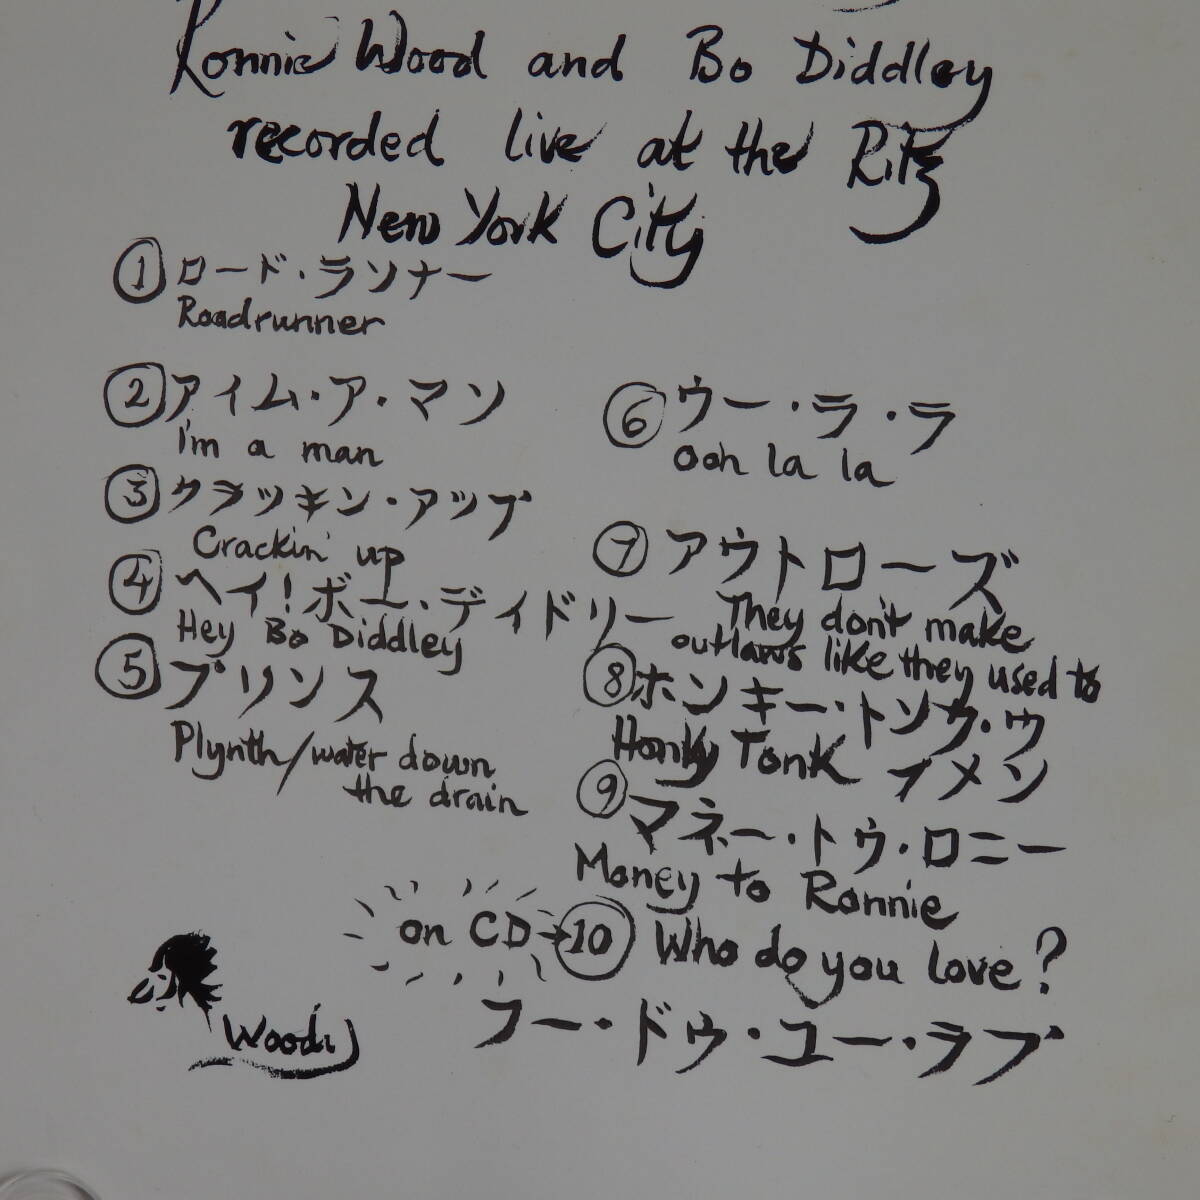 Ronnie Wood and Bo Diddley
recorded live at the Ritz
New York City
① ロード・ランナー
Roadrunner
② アイム・ア・マン
I'm a man
③ クラッキン・アップ
Crackin' up
④ ヘイ!ボー・ディドリー
Hey Bo Diddley
⑤ プリンス
Plynth/water down
the drain
⑥ ウー・ラ・ラ
Ooh la la
⑦ アウトローズ
They don't make
outlaws like they used to
⑧ ホンキー・トンク・ウ
Honky Tonk イメン
⑨ マネー・トゥ・ロニー
Money to Ronnie
on CD→⑩ Who do you love?
フー・ドゥ・ユー・ラブ
Woody